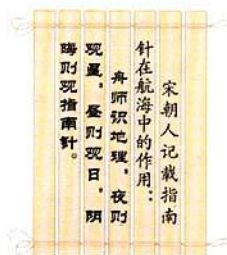 宋朝人记载指南
针在航海中的作用：
舟师识地理，夜则
观星，昼则观日，阴
晦则观指南针。